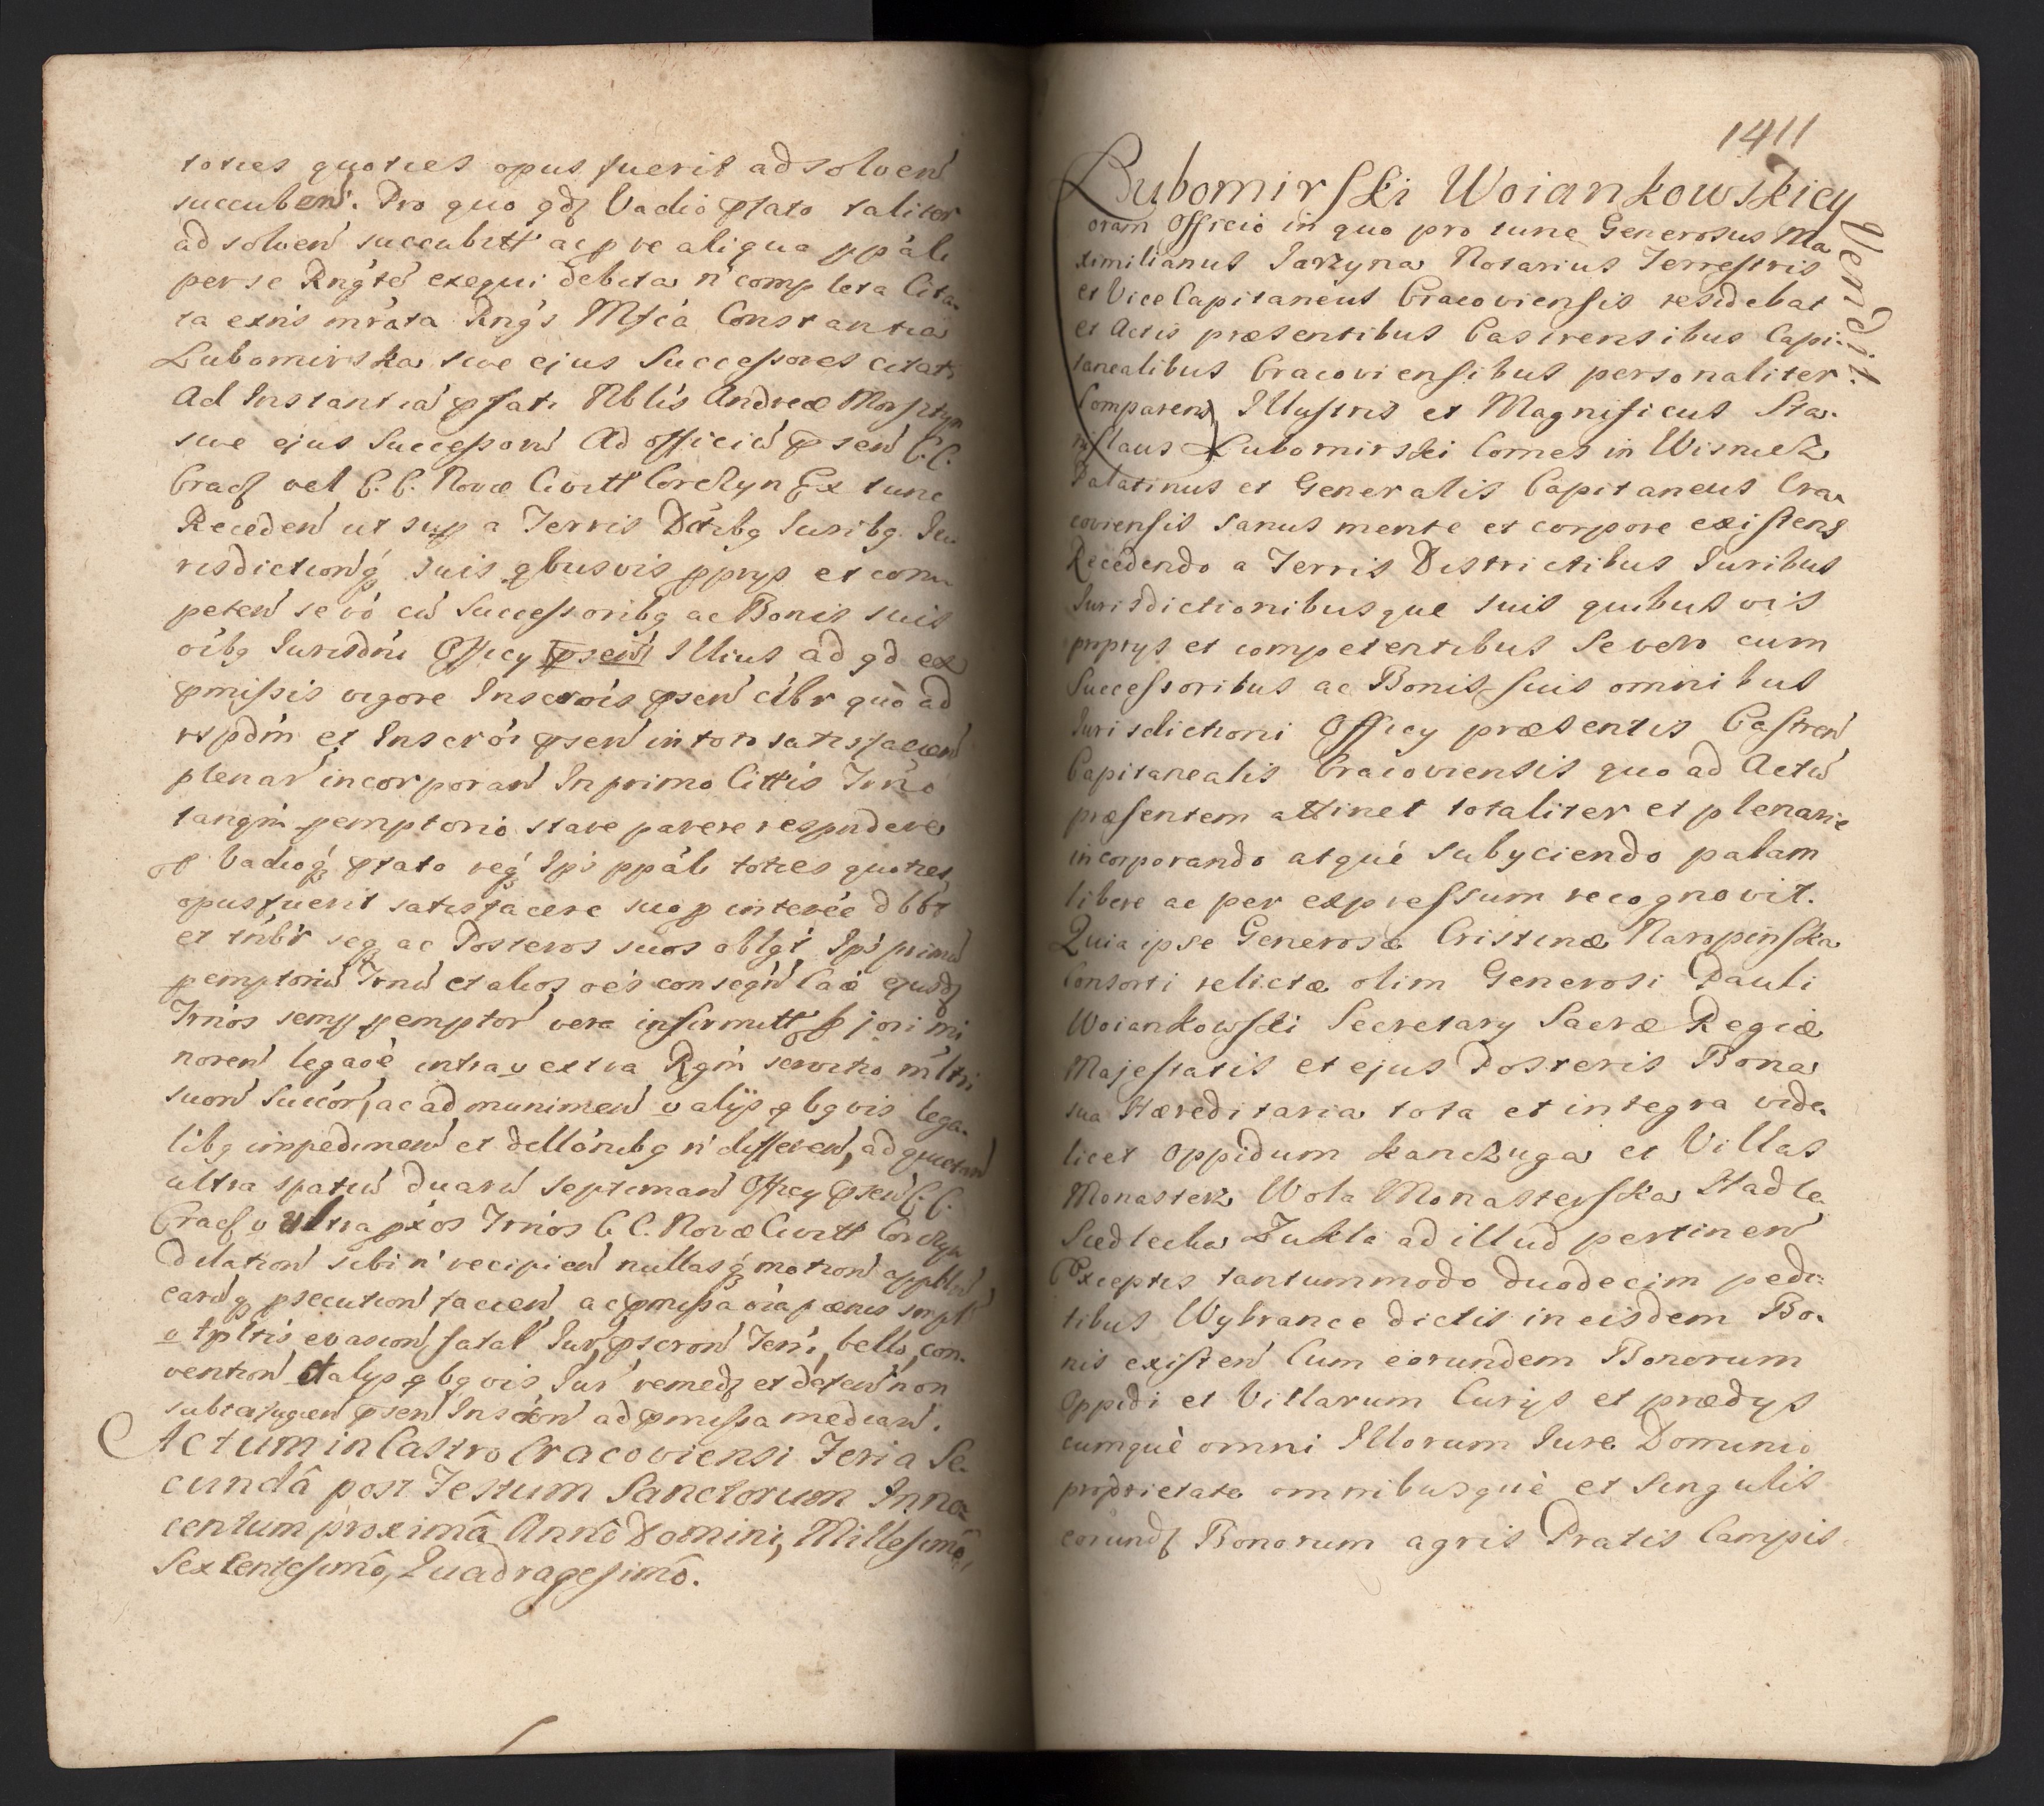 toties quoties opus fuerit ad solven
succuben. Pro quo qdʒ Vadio ptato taliter
ad solven succubitt ac p re aliqua ppâli
per se Rngte exequi debita n completa Cita-
ta exnis mrata Rngs Mfca Constantia
Lubomirska sive ejus Successores citati
Ad Instantiâ pfati Nblis Andreæ Morsztyn
sive ejus Successorû Ad officiû psen C. C.
Cracʃ vel C. C. Novæ Civitt Corczyn Ex tunc
Receden ut sup a Terris Dctibq Iuribq Iu
risdictionqʒ suis qbusvis pprys et com-
peten se vo cû Successoribq ac Bonis suis
oibq Iurisdni Officy psen Illius ad qd ex
pmissis vigore Inscrois psen cibr quo ad
rspdm et Inscroi psen in toto satisfacien
plenar incorporan In primo Cittis Trno
tanqm pemptorio stare parere respndere
Vadioqʒ ptato req Ips ppâli toties quoties
opus fuerit satisfacere suo p interee dbbt
et tnbr seqʒ ac Posteros suos oblgt Ips primû
pemptoriû Trnû et alios oes conseqn Caa ejusdʒ
Trnos semp pemptor vera infirmitt p jori mi
noren legaoe intra v extra Rgm servitio mltri
suor Succor, ac ad munimen v alijs qbqvis lega-
libq impedimen et dellonibq n differen, ad quietan
ultra spatiû duarû septiman Officy psen C. C.
Cracʃ v ultra pxos Trnos C. C. Novæ Civitt Corczyn
dilation sibi n recipien nullasqʒ motion appblen
earûqʒ psecution facien ac pmissa oia pænis sup pl
v tpltis evasion, fatal Iur, pscron Terri, bello, con-
vention et alijs qbqvis Iur remedʒ et deten non
subterfugien psen Inscron ad pmissa median.
Actum in Castro Cracoviensi Feria Se-
cundâ post Festum Sanctorum Inno-
centum proximâ Annô Domini, Millesimô,
Sexcentesimô, Quadragesimô.
1411
Lubomirski Woiankowskiey
Vendit.
Coram Officio in quo pro tunc Generosus Ma
ximilianus Jarzyna Notarius Terrestris
et Vice Capitaneus Cracoviensis residebat
et Actis præsentibus Castrensibus Capi-
tanealibus Cracoviensibus personaliter
Comparens Illustris et Magnificus Sta-
nislaus Lubomirski Comes in Wisnicz
Palatinus et Generalis Capitaneus Cra-
coviensis sanus mente et corpore existens
Recedendo a Terris Districtibus Iuribus
Iurisdictionibusque suis quibusvis
proprys et competentibus Se vero cum
Successoribus ac Bonis suis omnibus
Iurisdictioni Officy præsentis Castren
Capitanealis Cracoviensis quo ad Actû
præsentem attinet totaliter et plenarie
incorporando atquè subyciendo palam
libere ac per expressum recognovit.
Quia ipse Generosæ Cristinæ Naropinska
Consorti relictæ olim Generosi Pauli
Woiankowski Secretary Sacræ Regiæ
Majestatis et ejus Posteris Bona
sua Hæreditaria tota et integra vide-
licet Oppidum Kanczuga et Villas
Monasterz Wola Monasterska Hadle
Siedlecka Zukla ad illud pertinen
Exceptis tantummodo duodecim pedi-
tibus Wybrance dictis in eisdem Bo-
nis existen Cum eorundem Bonorum
Oppidi et Villarum Curijs et prædys
cumquè omni Illorum Iure Dominio
proprietate omnibusquè et Singulis
eorundʒ Bonorum agris Pratis Campis